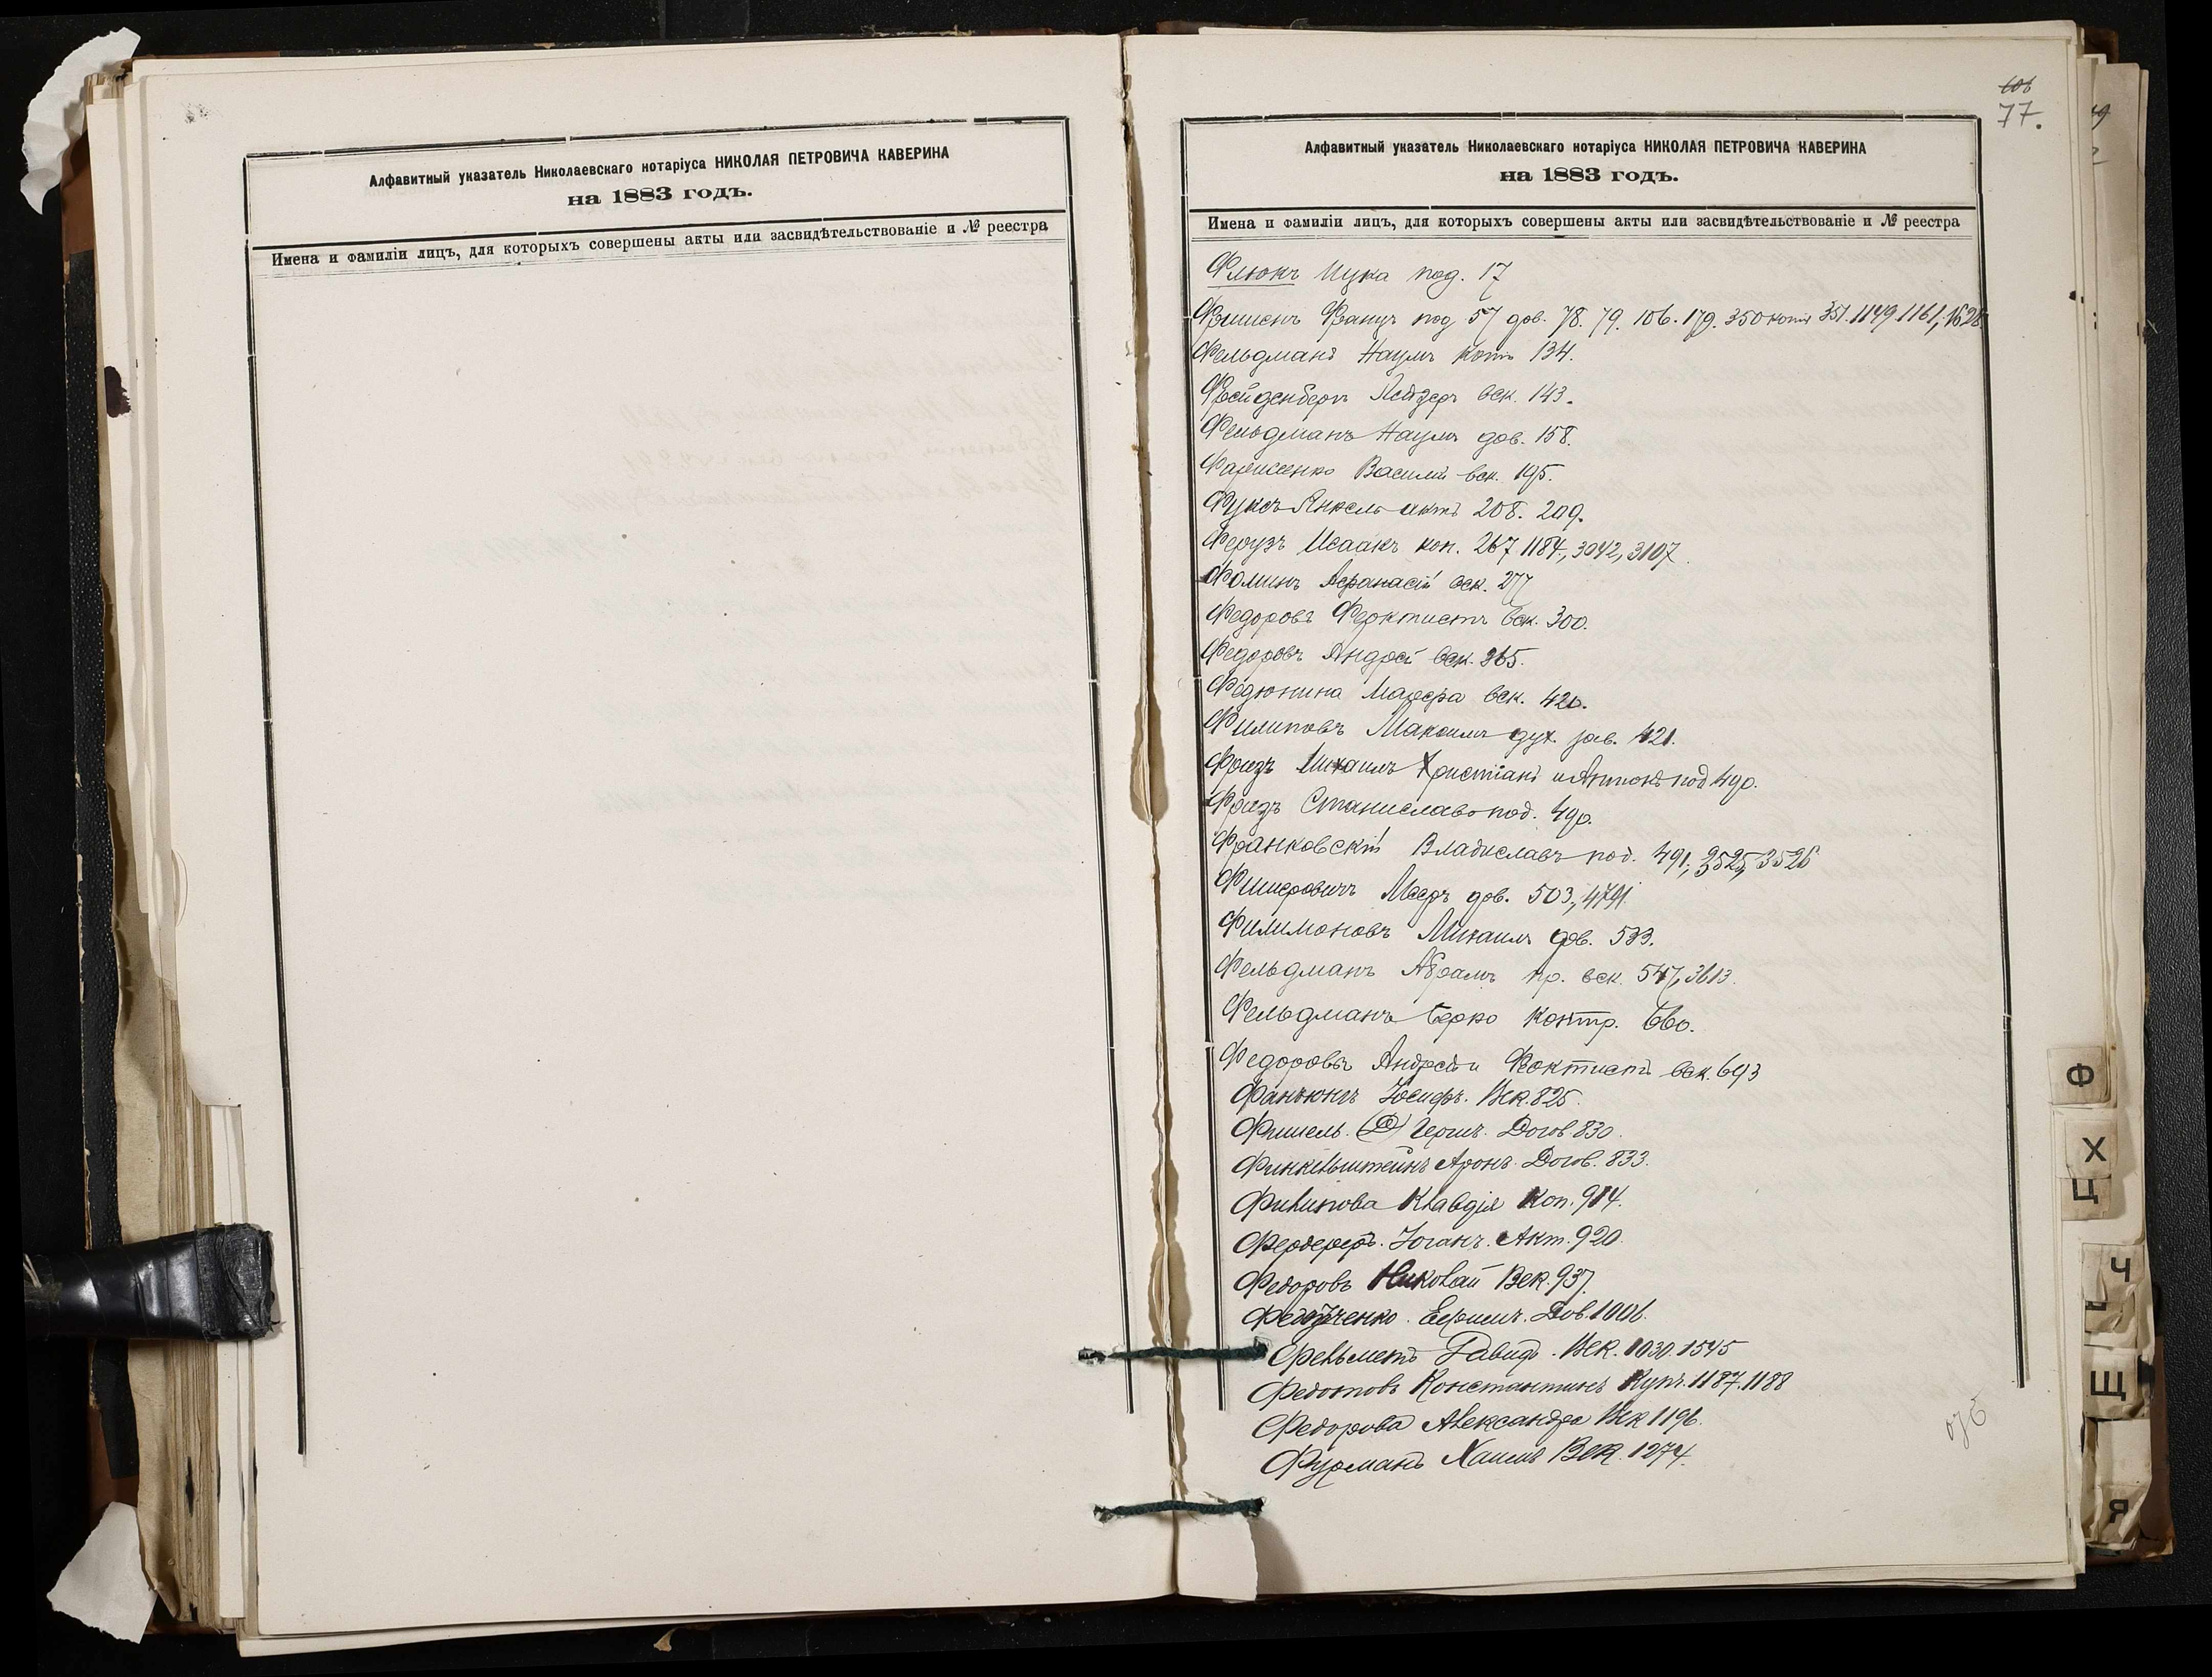 Алфавитный указатель Николаевскаго нотаріуса НИКОЛАЯ ПЕТРОВИЧА КАВЕРИНА
на 1883 годъ.
Имена и фамиліи лицъ, для которыхъ совершены акты или засвидѣтельствованіе и № реестра
106
77.
Алфавитный указатель Николаевскаго нотаріуса НИКОЛАЯ ПЕТРОВИЧА КАВЕРИНА
на 1883 годъ.
Имена и фамиліи лицъ, для которыхъ совершены акты или засвидѣтельствованіе и № реестра
Флюкъ Ицка под. 17
Францъ под 57 дов. 78. 79. 106. 179. 350 копія 351. 1149 1161, 1628
Фельдманъ Наумъ копія 134.
Фрейденбергъ Лейзеръ век. 143.
Фельдманъ Наумъ дов. 158.
Василій век. 195.
Фуксъ Янкель актъ 208. 209.
Исаакъ коп. 267 1184, 3042, 3107.
Фоминъ Афанасій век. 277
Федоровъ Феоктистъ век. 300.
Федоровъ Андрей век. 365.
Федюнина век. 420.
Филиповъ Максимъ дух. зав. 421.
Фризъ Михаилъ Христіанъ и Антонъ под 490.
Фризъ Станиславъ под. 490.
Франковскій Владиславъ под. 491, 3525, 3526
Фишеровичъ Мееръ дов. 503, 4791.
Филимоновъ Михаилъ дов. 533.
Фельдманъ Абрамъ пр. век. 547, 3613.
Фельдманъ Берко контр. 660.
Федоровъ Андрей и Феоктистъ век. 693
Іосифъ. Век. 825.
Фишель. Гершъ. Догов. 830.
Финкельштейнъ Аронъ. Догов. 833.
Филипова Клавдія Коп. 914.
Фердереръ. Іоганъ. Акт. 920.
Федоровъ Николай Век. 937.
Ефимъ. Дов. 1006.
Давидъ. Век. 1030. 1545
Федотовъ Константинъ Купч. 1187, 1188
Федорова Александра Век 1196.
Фурманъ Хаимъ Век. 1274.
Ф
Х
Ц
Ч
Щ
Я